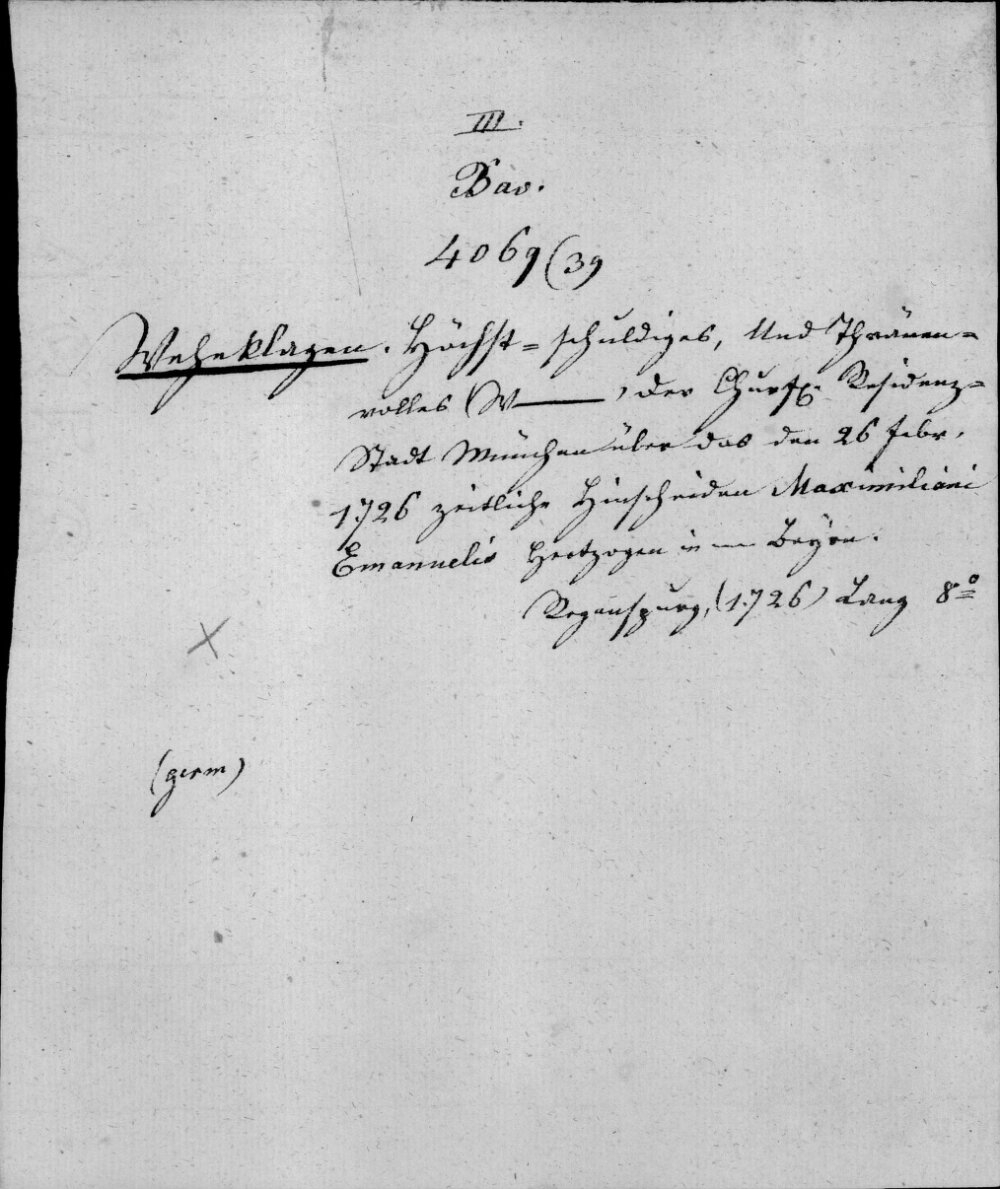 III.
Bav.
4069(39
Weheklagen. Höchst=schuldiges, Und Thränen=
volles (W——, der Churf. Residenz=
Stadt München über das den 26 Febr.
1726 zeitliche Hinscheiden Maximiliani
Emanuelis Hertzogen in — Beyrn.
Regenspurg, (1726) Lang 8º
(germ)